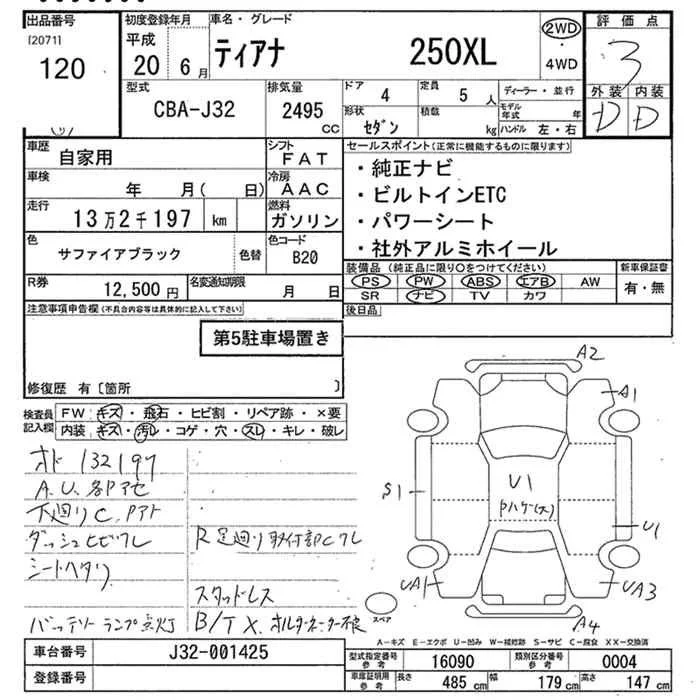 出品番号 初度登録年月 車名・グレード 評価点
[2071] 平成
120 20 年 6 月 ティアナ 250XL 2WD ・ 4WD 3
型式 排気量 ドア 4 定員 5 人 ディーラー・並行 外装 内装
CBA-J32 2495 cc 形状 セダン 積載 kg モデル年式 年 D D
ハンドル 左・右
車歴 自家用 シフト FAT セールスポイント(正常に機能するものに限ります)
車検 年 月( 日) 冷房 AAC ・純正ナビ
走行 13万2千197 km 燃料 ガソリン ・ビルトインETC
・パワーシート
色 サファイアブラック 色替 色コード B20 ・社外アルミホイール
R券 12,500円 名変通知期限 月 日 装備品(純正品に限り〇をつけてください) 新車保証書
PS PW ABS エアB AW 有・無
SR ナビ TV カワ
注意事項申告欄(不具合内容等は具体的に記入して下さい) 後日品
第5駐車場置き
修復歴 有〔箇所 〕
検査員記入欄 FW キズ・飛石・ヒビ割・リペア跡・×要
内装 キズ・汚レ・コゲ・穴・スレ・キレ・破レ
オド 132197
A.U.各部アセ
下廻りC、Pアト
ダッシュヒビワレ R足廻り取付部Cワレ
シートヘタリ
スタッドレス
バッテリーランプ点灯 B/T X、オルタネーター不良
A2
A1
S1 U1 U1
Pハゲ(大)
UA1 UA3
スペア A4
A-キズ E-エクボ U-凹み W-補修跡 S-サビ C-腐食 XX-交換済
車台番号 J32-001425 型式指定番号 参考 16090 類別区分番号 参考 0004
登録番号 車庫証明用 参考 長さ 485 cm 幅 179 cm 高さ 147 cm